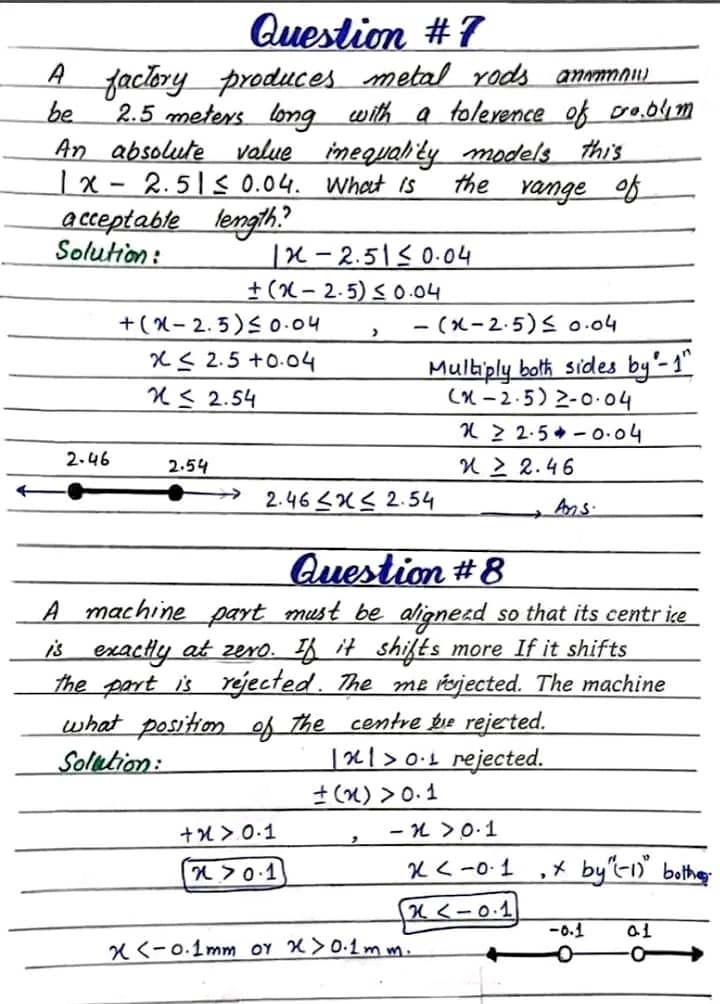 Question #7
A factory produces metal rods
be 2.5 meters long with a tolerence of
An absolute value inequality models this
|x - 2.5| ≤ 0.04. What is the range of
acceptable length?
Solution: |x - 2.5| ≤ 0.04
±(x - 2.5) ≤ 0.04
+(x - 2.5) ≤ 0.04 , -(x - 2.5) ≤ 0.04
x ≤ 2.5 + 0.04 Multiply both sides by "-1"
x ≤ 2.54 (x - 2.5) ≥ -0.04
x ≥ 2.5 - 0.04
2.46 2.54 x ≥ 2.46
2.46 ≤ x ≤ 2.54 → Ans.
Question #8
A machine part must be so that its
is exactly at zero. If it shifts more If it shifts
the part is rejected. The rejected. The machine
what position of the centre rejected.
Solution: |x| > 0.1 rejected.
±(x) > 0.1
+x > 0.1 , -x > 0.1
x > 0.1 x < -0.1 , × by "(-1)"
x < -0.1
-0.1 0.1
x < -0.1mm or x > 0.1mm.